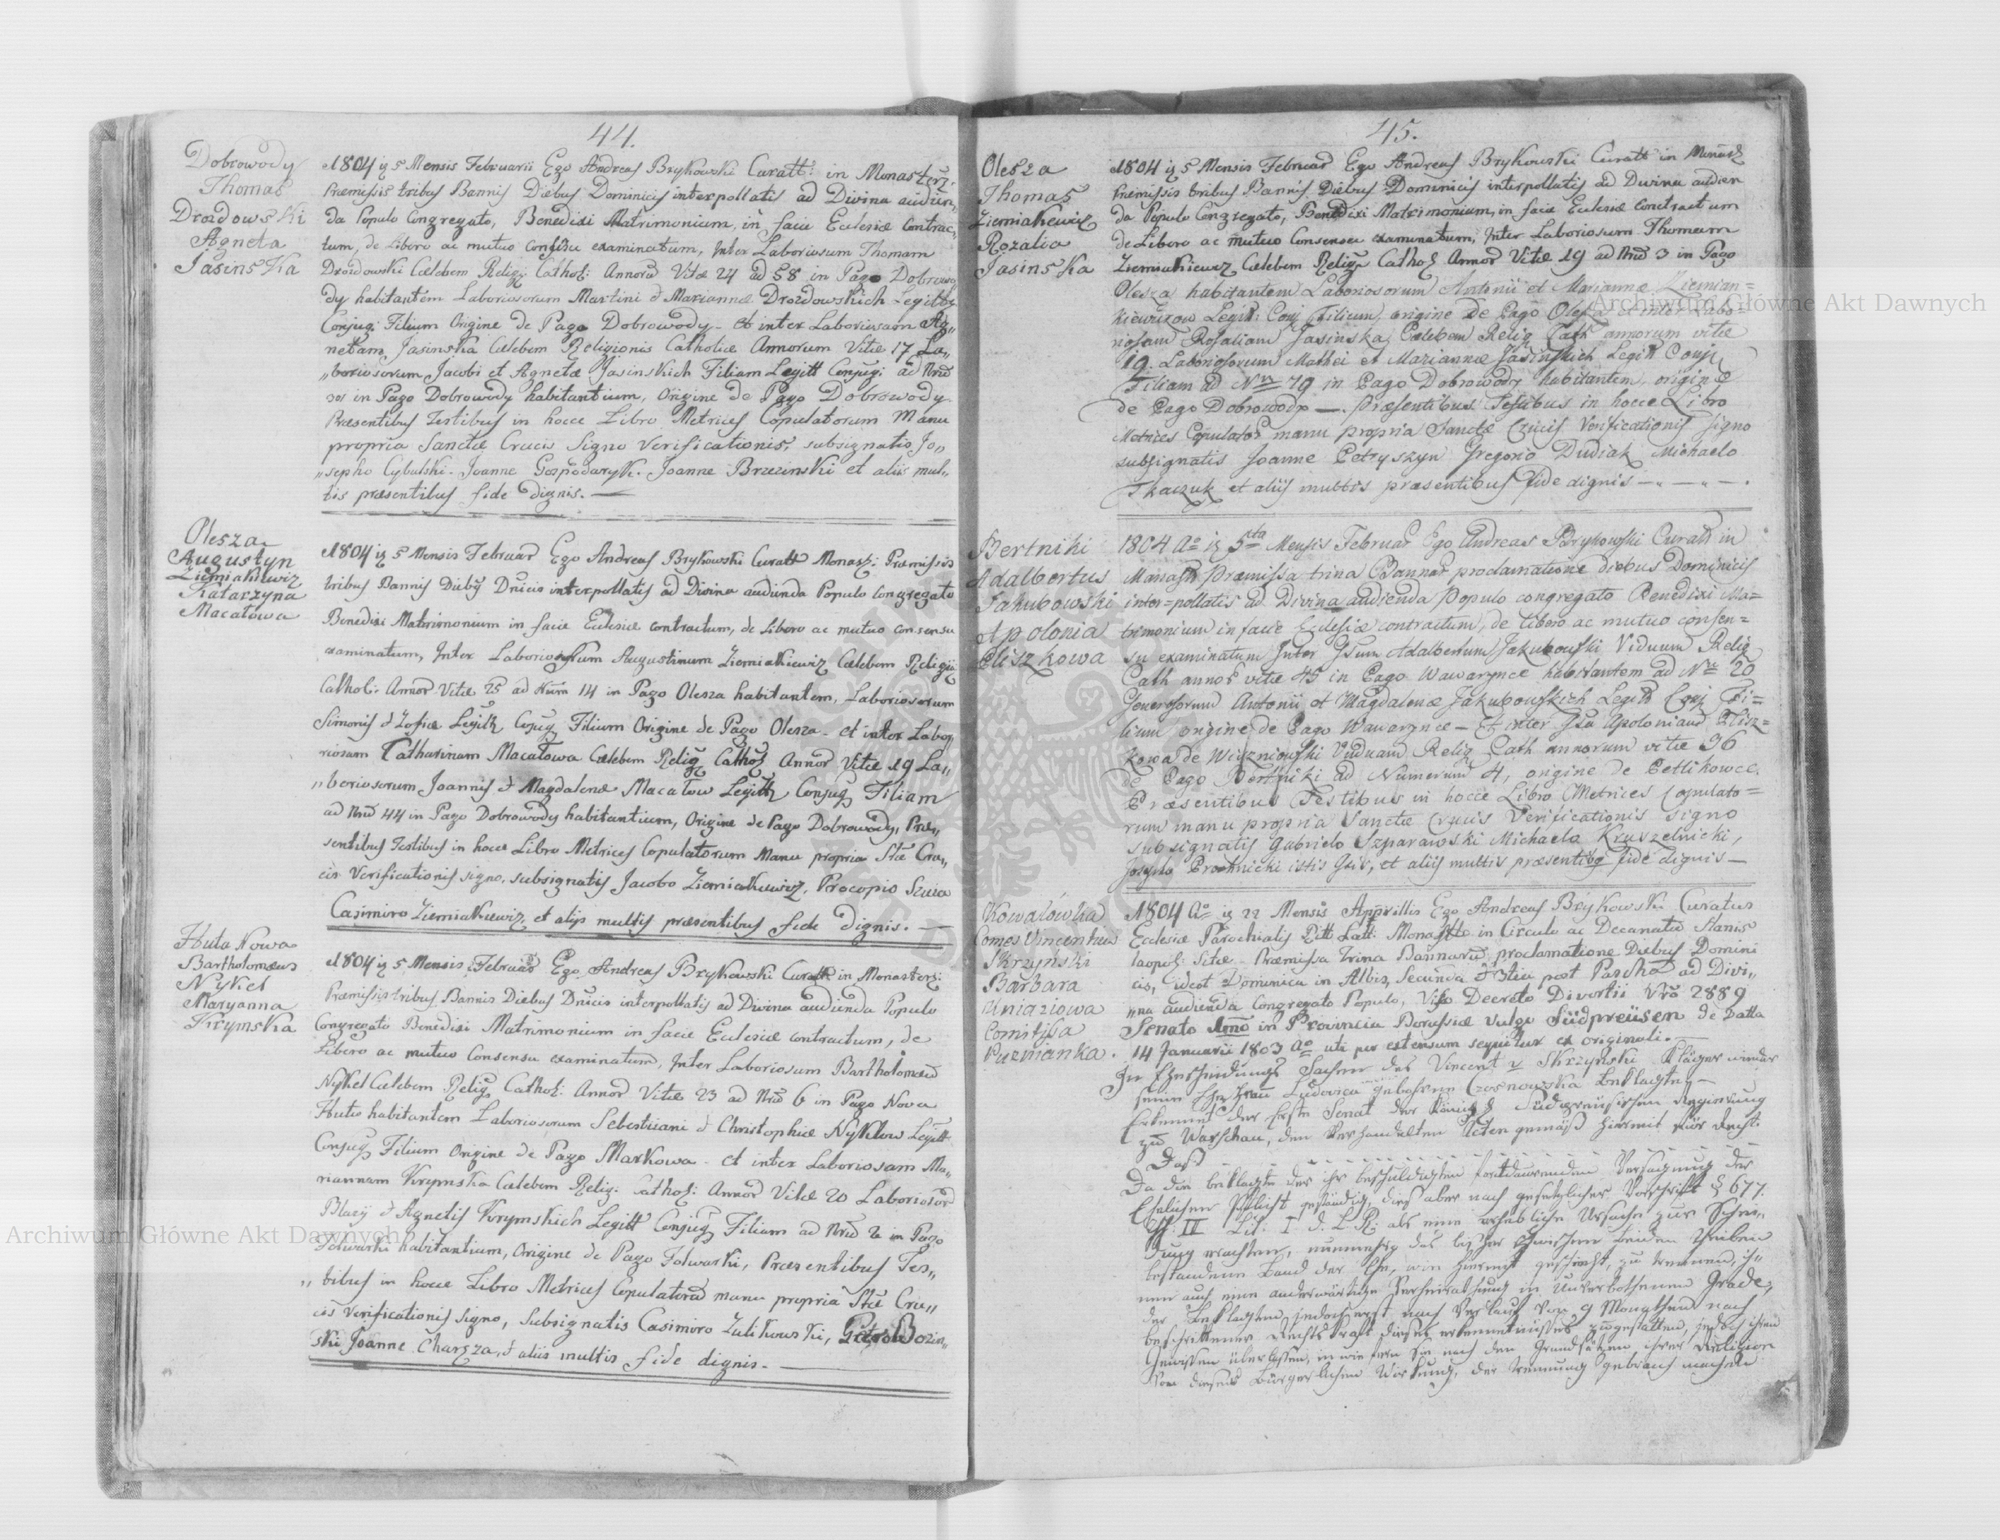 44.
Dobrowody
Thomas
Drozdowski
Agneta
Jasinska
1804 is 5 Mensis Februarii Ego Andreas Brykowski Curatt: in Monasterz:
Præmissis tribus Bannis Diebus Dominicis interpollatis ad Divina audien,
da Populo Congregato, Benedixi Matrimonium, in facie Eclesiæ Contrac,
tum, de Libero ac mutuo Consensu examinatum, Inter Laboriosum Thomam
Drozdowski Cælebem Relig: Cathol: Annorũ Vitæ 24 ad 58 in Pago Dobrowo,
dy habitantem Laboriosorum Martini & Mariannæ Drozdowskich Legitt:
Conjug: Filium Origine de Pago Dobrowody - et inter Laboriosam Ag,,
netam Jasinska Cælebem Religionis Catholicæ Annorum Vitæ 17 La,,
,,boriosorum Jacobi et Agnetæ Jasinskich Filiam Legitt Conjug: ad Nrũ
in Pago Dobrowody habitantium, Origine de Pago Dobrowody
Præsentibus Testibus in hocce Libro Metrices Copulatorum Manu
propria Sanctæ Crucis Signo Verificationis, subsignatis Jo,,
,,sepho Cybulski. Joanne Gospodaryk. Joanne Brzezinski et aliis mul,,
tis præsentibus fide dignis. —
Olesza
Augustyn
Ziemiakiewiz
Katarzyna
Macałowa
1804 is 5 Mensis Februar Ego Andreas Brykowski Curatt Monasz: Præmissis
tribus Bannis Diebus Dnicis interpollatis ad Divina audienda Populo Congregato
Benedixi Matrimonium in facie Eclesiæ contractum, de Libero ac mutuo consensu
examinatum, Inter Laboriosum Augustinum Ziemiakiewiz Cælebem Religii
Cathol: Annor Vitæ 25 ad Num 14 in Pago Olesza habitantem, Laboriosorum
Simonis & Zofiæ Legitt Conjug Filium Origine de Pago Olesza - et inter Labo,
riosam Catharinam Macałowa Cælebem Relig Cathol Annor Vitæ 19 La,,
,,boriosorum Joannis & Magdalenæ Macałow Legitt Conjug Filiam
ad Nrũ 44 in Pago Dobrowody habitantium, Origine de Pago Dobrowody, Præ,
sentibus Testibus in hocce Libro Metrices Copulatorum Manu propria Stæ Cru,,
cis Verificationis signo, subsignatis Jacobo Ziemiakiewiz, Procopio
Casimiro Ziemiakiewiz et aliis multis præsentibus fide dignis. —
Huta Nowa
Bartholomæus
Nykiel
Maryanna
Krymska
1804 is 5 Mensis Februar Ego Andreas Brykowski Curatt in Monasterz:
Præmissis tribus Bannis Diebus Dnicis interpollatis ad Divina audienda Populo
Congregato Benedixi Matrimonium in facie Eclesiæ contractum, de
Libero ac mutuo Consensu examinatum, Inter Laboriosum Bartholomæũ
Nykiel Cælebem Relig Cathol: Annor Vitæ 23 ad Nrũ 6 in Pago Nova
Huta habitantem Laboriosorum Sebestiani & Christophiæ Nykielow Legitt
Conjug Filium Origine de Pago Markowa - et inter Laboriosam Ma,
riannam Krymska Cælebem Relig: Cathol: Annor Vitæ 20 Laboriosorũ
Blasij & Agnetis Krymskich Legitt Conjug Filiam ad Nrũ 2 in Pago
Folwarki habitantium, Origine de Pago Folwarki, Præsentibus Tes,,
,, tibus in hocce Libro Metrices Copulatorũ manu propria Stæ Cru,,
cis Verificationis signo, subsignatis Casimiro Zulikowski, Petro Bozin,,
ski Joanne Charzza, & aliis multis fide dignis. —
45.
Olesza
Thomas
Ziemiakewicz
Rozalia
Jasinska
1804 is 5 Mensis Februar Ego Andreas Brykowski Curatt in Monastz
Præmissis tribus Bannis Diebus Dominicis interpollatis ad Divina audien
da Populo Congregato, Benedixi Matrimonium, in facie Eclesiæ Contractum
de Libero ac mutuo Consensu examinatum, Inter Laboriosum Thomam
Ziemiakiewiz Cælebem Relig Cathol Annor Vitæ 19 ad Nrũ 3 in Pago
Olesza habitantem Laboriosorum Antonii et Mariannæ Ziemian=
kiewiczow Legitt: Conj Filium origine de Pago Olesza et inter Labo=
riosam Rosaliam Jasinska Cælebem Relig Cath annorum vitæ
19. Laboriosorum Mathei et Mariannæ Jasinskich Legitt Conj
Filiam ad Nrũ 79 in Pago Dobrowody habitantem, origine
de Pago Dobrowody —. Præsentibus Testibus in hocce Libro
Metrices Copulator manu propria Sanctæ Crucis Verificationis signo
subsignatis Joanne Petryszyn Gregorio Dudiak Michaelo
Tkaczuk et aliis multis præsentibus fide dignis — „ — „ — .
Bertniki
Adalbertus
Jakubowski
Apolonia
Eliszkowa
1804 Ao is 5ta Mensis Februar Ego Andreas Brykowski Curatt in
Monastr Præmissa trina Bannor proclamatione diebus Dominicis
inter=pollatis ad Divina audienda Populo congregato Benedixi Ma=
trimonium in facie Ecclesiæ contractum, de libero ac mutuo consen=
su examinatum Inter Gsum Adalbertum Jakubowski Viduum Relig
Cath annor vitæ 45 in Pago Wawarynce habitantem ad Nr 20
Generosorum Antonii et Magdalenæ Jakubowskich Legitt Conj Fi=
lium origine de Pago Wawarynce — Et inter Gsã Apoloniam Elisz=
kowa de Wiszniowski Viduam Relig Cath annorum vitæ 36
de Pago Bertniki ad Numerum 4, origine de Petlikowce.
Præsentibus Testibus in hocce Libro Metrices Copulato=
rum manu propria Sanctæ Crucis Verificationis signo
subsignatis Gabrielo Szparawski Michaelo Kruszelnicki,
Josepho Prochnicki istis Gsis, et aliis multis præsentibus fide dignis —
Kowalowka
Comes Vincentius
Skrzynski
Barbara
Uniazizowa
Comitissa
Puzynianka.
1804 Ao is 22 Mensis Apprillis Ego Andreas Brykowski Curatus
Ecclesiæ Parochialis Ritt Latt: Monastto in Circulo ac Decanatu Stanis
laopol: Sitæ - Præmissa trina Bannarũ proclamatione Diebus Domini
cis, ideot Dominica in Albis, Secunda & 3tia post Pascha ad Divi,,
,,na audienda Congregato Populo, Viso Decreto Divortii Nro 2889
Senato Imo in Provincia Borussiæ vulgo Südpreüsen de Datto
14 Januarii 1803 Ao uti per extensum sequitur ex originali. —
In Ehescheidungs Sachen des Vincent v Skrzynski Kläger wieder
seine Ehe Frau Ludovica gebohrne Czosnowska Beklagten —
Erkennet der Erste Senat der Königl Südpreüsischen Regierung
zu Warschau, den Verhandelten Acten gemäss hiermit für Recht.
Dass
Da die beklagte der ihr beschuldigten fortdaurenden Versagung der
Ehelichen Pflicht geständig, dies aber nach gesetzlicher Vorschrift § 677.
Th. II Tit. I d. L. R. als eine erhebliche Ursache zur Schei,,
dung erachten, nunmehro das bisher zwischen beiden Theilen
bestandene Band der Ehe, wie hiermit geschieht, zu trennen, ih,,
nen auch eine anderwärtige Verheirathung in unverbothenem Grade,
der Beklagten jedoch erst nach Verlauf von 9 Monathen nach
beschrittener Rechts kraft dieses erkenntnisses zugestatten, jedoch ihrem
Gewissen überlassen, in wie fern sie nach den Grundsätzen ihrer Religion
von dieser Bürgerlichen Wirkung der trennung gebrauch machen
Archiwum Główne Akt Dawnych
Archiwum Główne Akt Dawnych